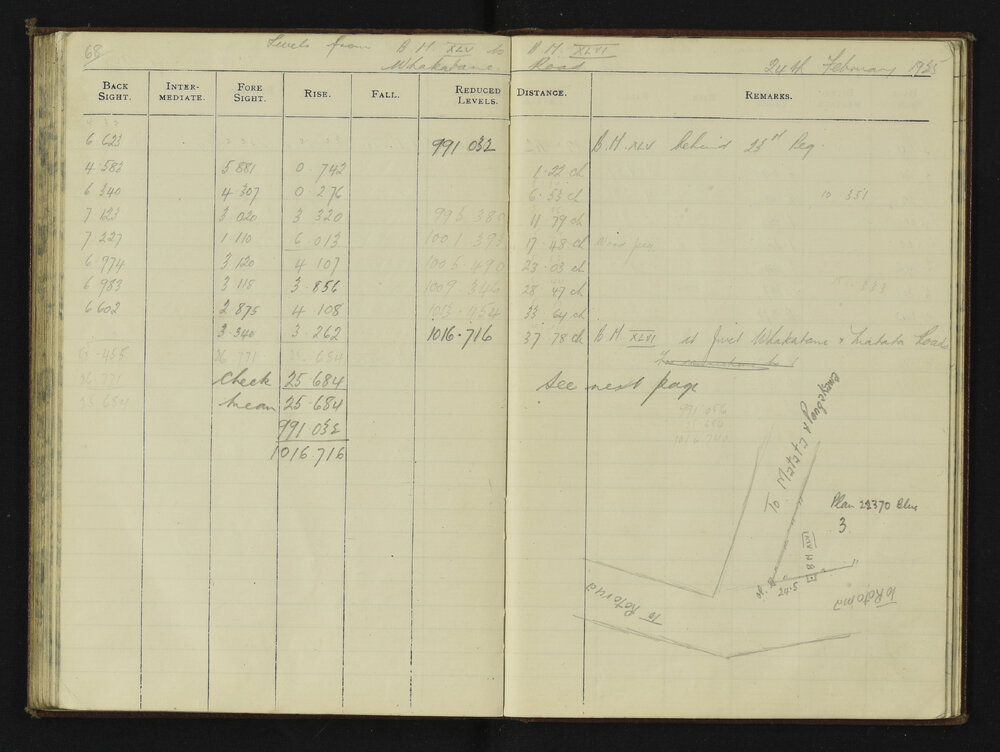 68
Levels from B.M. XLV to B.M. XLVI
Whakatane Road 24th February 1925
BACK SIGHT. INTER-MEDIATE. FORE SIGHT. RISE. FALL. REDUCED LEVELS. DISTANCE. REMARKS.
6 623 991 032 B.M. XLV behind 23rd Peg.
4 583 5 881 0 742 1·22 ch
6 340 4 307 0·276 6·53 ch 10 351
7 123 3 020 3 320 995 380 11 79 ch
7 227 1·110 6·013 1001 393 17·48 ch
6 974 3 120 4 107 1005 490 23·03 ch
6 983 3 118 3·856 1009 346 28 47 ch
6 602 2 875 4 108 33 64 ch
3·340 3·262 1016·716 37·78 ch B.M. XLVI at junct Whakatane & Matata Road
26 771 25 684
26 771 Check 25 684 See next page
25 684 mean 25·684 991 056
991·032
1016·716 1016 740
To Matata &
Plan 22370 Blue
3
B M XLVI
24·5
To Rotorua
To Rotoma